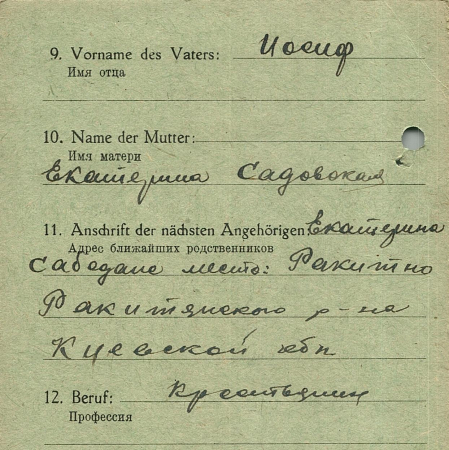 9. Vorname des Vaters: Иосиф
Имя отца
10. Name der Mutter:
Имя матери
Екатерина Садовская
11. Anschrift der nächsten Angehörigen Екатерина
Адрес ближайших родственников
место: Ракитно
Ракитянского р-на
Киевской обл
12. Beruf: Крестьянин
Профессия